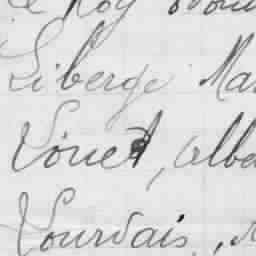 Le Roy
Liberge Mar
Louet, Albe
Lourdais,